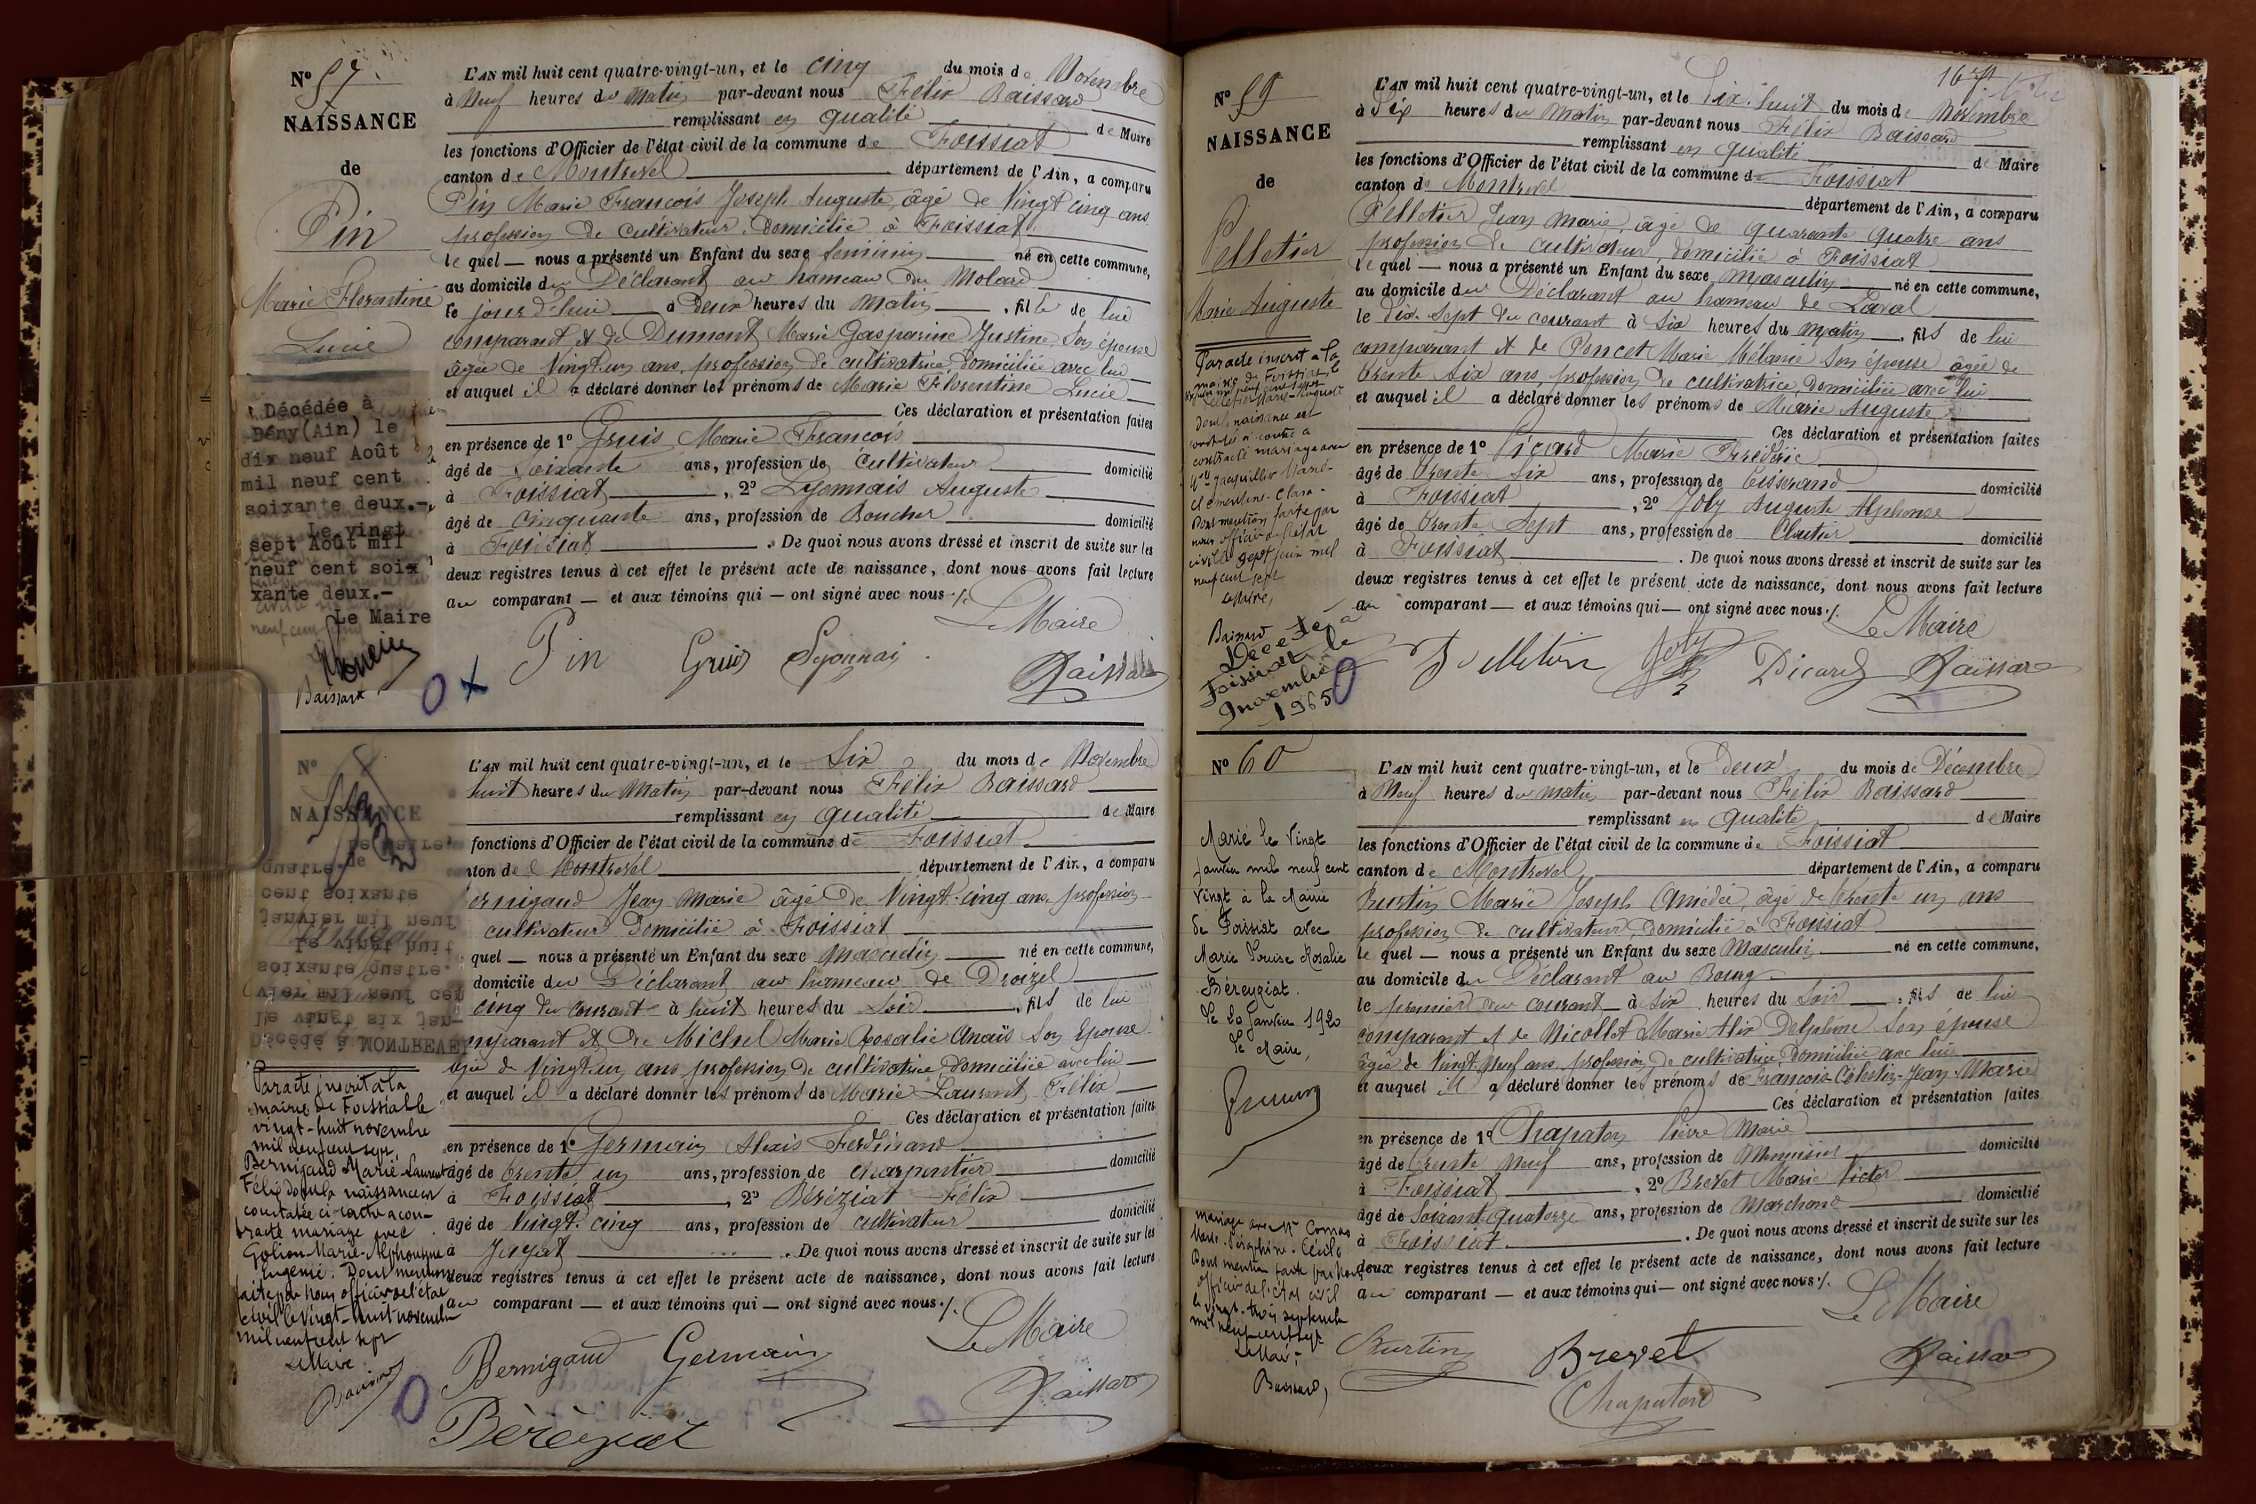 Nº 57
NAISSANCE
de
Pin
Marie Florentine
Lucie
Décédée à
Bény(Ain) le
dix neuf Août
mil neuf cent
soixante deux.-
Le vingt
sept Août mil
neuf cent soi-
xante deux.-
Le Maire
Baissard
L'AN mil huit cent quatre-vingt-un, et le cinq du mois de Novembre
à Neuf heures du Matin par-devant nous Félix Baissard
remplissant en qualité de Maire
les fonctions d'Officier de l'état civil de la commune de Foissiat
canton de Montrevel département de l'Ain, a comparu
Pin Marie François Joseph Auguste, âgé de Vingt cinq ans
profession de cultivateur, domicilié à Foissiat
lequel — nous a présenté un Enfant du sexe féminin né en cette commune,
au domicile du Déclarant au hameau du Molard
ce jour d'hui à Deux heures du matin, fille de lui
comparant et de Dumont Marie Gasparine Justine, son épouse
âgée de Vingt un ans, profession de cultivatrice, domiciliée avec lui
et auquel il a déclaré donner les prénoms de Marie Florentine Lucie
Ces déclaration et présentation faites
en présence de 1º Gruis Marie François
âgé de Soixante ans, profession de cultivateur domicilié
à Foissiat, 2º Lyonnais Auguste
âgé de cinquante ans, profession de Boucher domicilié
à Foissiat. De quoi nous avons dressé et inscrit de suite sur les
deux registres tenus à cet effet le présent acte de naissance, dont nous avons fait lecture
au comparant — et aux témoins qui — ont signé avec nous ./.
Le Maire
Pin Gruis Lyonnais Baissard
Nº
NAISSANCE
de
Décédé à MONTREVEL
le vingt six jan-
vier mil neuf cent
soixante quatre.
Le vingt huit
janvier mil neuf
cent soixante
quatre.
Le Maire,
Par acte inscrit à la
mairie de Foissiat le
vingt-huit novembre
mil neuf cent sept,
Bernigaud Marie-Laurent
Félix dont la naissance est
constatée ci-contre a con-
tracté mariage avec
Golion Marie-Alphonsine
Eugénie. Dont mention
faite par nous officier de l'état
civil le vingt-huit novembre
mil neuf cent sept
Le Maire
Baissard
L'AN mil huit cent quatre-vingt-un, et le Six du mois de Novembre
huit heures du Matin par-devant nous Félix Baissard
remplissant en qualité de Maire
fonctions d'Officier de l'état civil de la commune de Foissiat
ton de Montrevel département de l'Ain, a comparu
ernigaud Jean Marie âgé de Vingt-cinq ans profession
cultivateur domicilié à Foissiat
quel — nous a présenté un Enfant du sexe Masculin né en cette commune,
domicile du Déclarant au hameau de Droizel
cinq du courant à huit heures du soir, fils de lui
mparant et de Michel Marie Rosalie Anaïs son épouse
âgée de Vingt un ans, profession de cultivatrice domiciliée avec lui
et auquel il a déclaré donner les prénoms de Marie Laurent Félix
Ces déclaration et présentation faites
en présence de 1º Germain Alexis Ferdinand
âgé de trente un ans, profession de charpentier domicilié
à Foissiat, 2º Béréziat Félix
âgé de Vingt-cinq ans, profession de cultivateur domicilié
à Jayat. De quoi nous avons dressé et inscrit de suite sur les
deux registres tenus à cet effet le présent acte de naissance, dont nous avons fait lecture
au comparant — et aux témoins qui — ont signé avec nous ./.
Le Maire
Bernigaud Germain Baissard
Béréziat
Nº 59
NAISSANCE
de
Pelletier
Marie Auguste
Par acte inscrit à la
mairie de Foissiat le
Pelletier Marie-Auguste
dont la naissance est
constatée ci-contre a
contracté mariage avec
Mlle Jacquillier Marie-
Clémentine-Clara-
Dont mention faite par
nous officier de l'état
civil le sept juin mil
neuf cent sept
Le Maire,
Baissard
Décédé à
Foissiat le
9 novembre
1965
L'AN mil huit cent quatre-vingt-un, et le Dix-huit du mois de Novembre
à Six heures du Matin par-devant nous Félix Baissard
remplissant en qualité de Maire
les fonctions d'Officier de l'état civil de la commune de Foissiat
canton de Montrevel département de l'Ain, a comparu
Pelletier Jean Marie, âgé de quarante quatre ans
profession de cultivateur, domicilié à Foissiat
lequel — nous a présenté un Enfant du sexe masculin né en cette commune,
au domicile du Déclarant au hameau de Laval
le Dix-Sept du courant à Six heures du matin, fils de lui
comparant et de Poncet Marie Mélanie son épouse âgée de
trente six ans, profession de cultivatrice, domiciliée avec lui
et auquel il a déclaré donner les prénoms de Marie Auguste
Ces déclaration et présentation faites
en présence de 1º Picard Marie Frédéric
âgé de trente six ans, profession de Tisserand domicilié
à Foissiat, 2º Joly Auguste Alphonse
âgé de trente Sept ans, profession de Cloutier domicilié
à Foissiat. De quoi nous avons dressé et inscrit de suite sur les
deux registres tenus à cet effet le présent acte de naissance, dont nous avons fait lecture
au comparant — et aux témoins qui — ont signé avec nous ./.
Le Maire
Pelletier Joly Picard Baissard
Nº 60
Marié le Vingt
janvier mil neuf cent
vingt à la Mairie
de Foissiat avec
Marie Louise Rosalie
Béreyziat.
Le 20 Janvier 1920
Le Maire,
mariage avec Mlle Connas
Marie-Joséphine-Cécile
Dont mention faite par nous
officier de l'état civil
le vingt-trois septembre
mil neuf cent sept
Le Maire
Baissard
L'AN mil huit cent quatre-vingt-un, et le Deux du mois de Décembre
à Neuf heures du matin par-devant nous Félix Baissard
remplissant en qualité de Maire
les fonctions d'Officier de l'état civil de la commune de Foissiat
canton de Montrevel département de l'Ain, a comparu
Kurtin Marie Joseph Amédée, âgé de trente un ans
profession de cultivateur, domicilié à Foissiat
lequel — nous a présenté un Enfant du sexe Masculin né en cette commune,
au domicile du Déclarant au Bourg
le premier du courant à six heures du soir, fils de lui
comparant et de Nicollet Marie Alix Delphine son épouse
âgée de Vingt Neuf ans, profession de cultivatrice, domiciliée avec lui
et auquel il a déclaré donner les prénoms de François-Célestin-Jean-Marie
Ces déclaration et présentation faites
en présence de 1º Chapaton Pierre Marie
âgé de trente Neuf ans, profession de Menuisier domicilié
à Foissiat, 2º Brevet Marie Victor
âgé de Soixant Quatorze ans, profession de Marchand domicilié
à Foissiat. De quoi nous avons dressé et inscrit de suite sur les
deux registres tenus à cet effet le présent acte de naissance, dont nous avons fait lecture
au comparant — et aux témoins qui — ont signé avec nous ./.
Le Maire
Kurtin Brevet Baissard
Chapaton